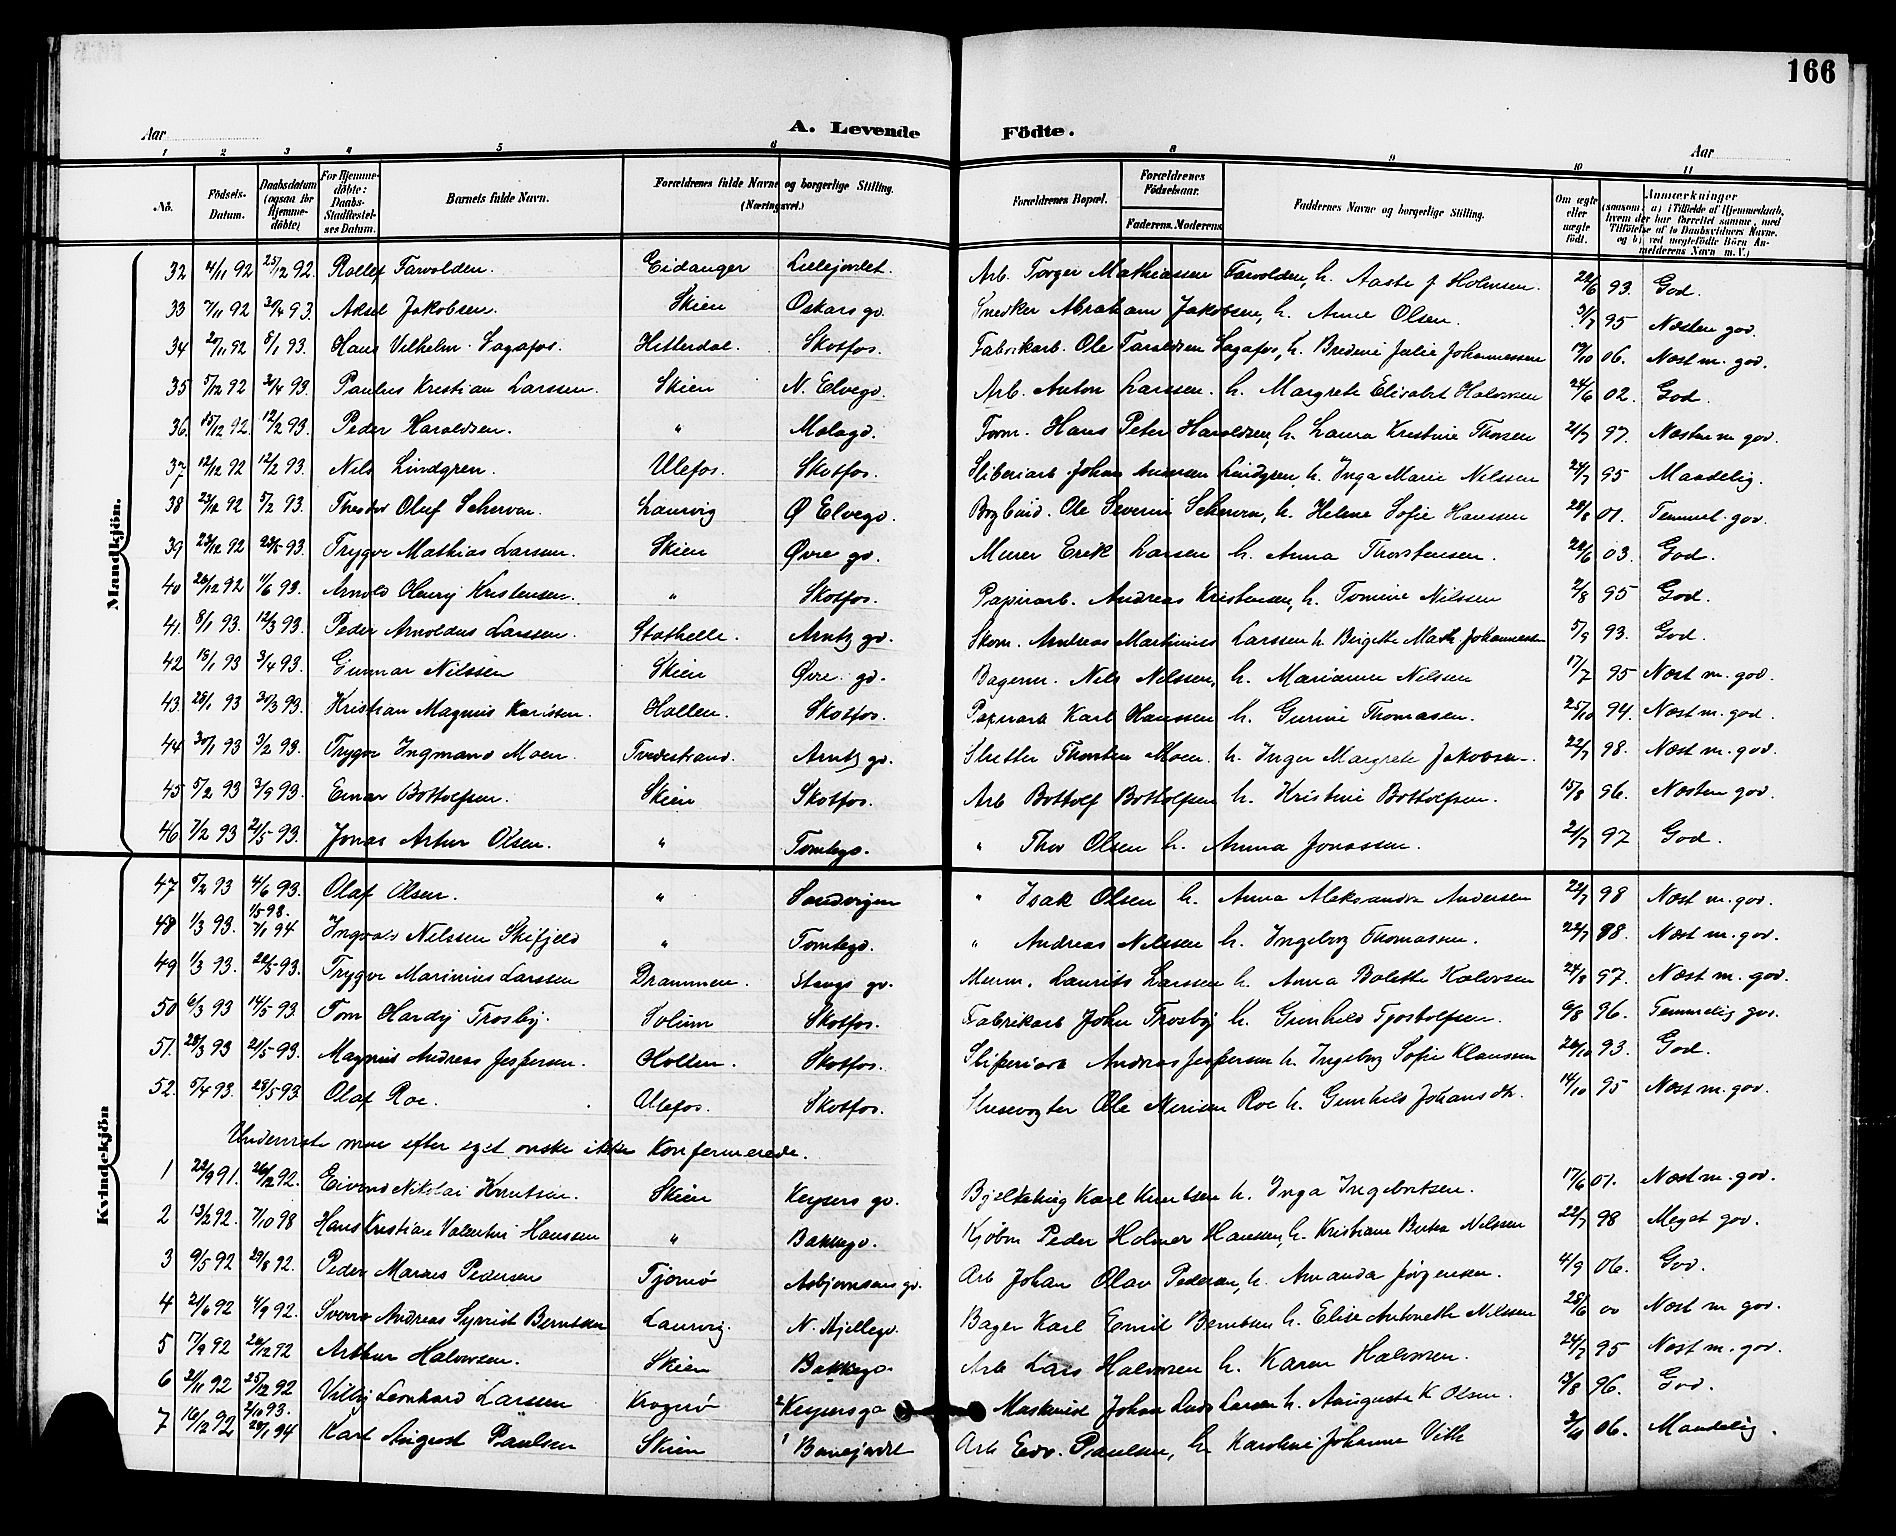 166
Aar
A. Levende Födte.
Aar
1 2 3 4 5 6 8 9 10 11
Nö. Födsels-Datum. Daabsdatum (ogsaa for Hjemme-döbte) For Hjemme-döbte: Daabs-Stadfæstel-ses Datum. Barnets fulde Navn. Forældrenes fulde Navne og borgerlige Stilling. (Næringsvei.) Forældrenes Bopæl. Forældrenes Födselsaar. Faderens. Moderens. Faddernes Navne og borgerlige Stilling. Om ægte eller uægte födt. Anmærkninger (saasom: a) i Tilfælde af Hjemmedaab, hvem der har forrettet samme, med Tilföielse af to Daabsvidners Navne, og b) ved uægtefödte Börn An-melderens Navn m. V.)
Mandkjön.
32 4/11 92 25/12 92. Rollef Farvolden. Eidanger Lielejordet. Arb. Torger Mathiassen Farvolden, h. Aaste f. Holmsen. 22/6 93. God.
33 7/11 92 30/4 93. Aksel Jakobsen. Skien Oskars gd. Snedker Abraham Jakobsen, h. Anne Olsen. 3/7 95 Næsten god.
34 20/11 92 8/1 93. Hans Vilhelm Sagafos. Hitterdal. Skotfos. Fabrikarb. Ole Taraldsen Sagafos, h. Bredine Julie Johannessen 19/10 06. Næst m. god.
35 5/12 92 3/4 93. Paulus Kristian Larssen. Skien N. Elvegd. Arb. Anton Larssen. h. Margrete Elisabet Halvorsen 24/6 02. God.
36. 15/12 92. 12/2 93. Peder Haraldsen. " Molagd. Form. Hans Peter Haraldsen, h. Laura Kristine Thorsen 21/7 97. Næsten m god.
37 12/12 92 12/2 93. Nils Lindgren. Ulefos. Skotfos. Sliberiarb. Johan Lindgren, h. Inga Marie Nilssen 24/7 95 Maadelig.
38 23/12 92 5/2 93. Theodor Oluf Scherven. Laurvig Ø Elvegd. Bogbind. Ole Severin Scherven, h. Helene Sofie Hanssen 28/8 01. Temmel. god.
39 23/12 92 28/5 93. Trygve Mathias Larssen. Skien Øvre gd. Murer Erik Larsen h. Anna Thorstensen. 22/6 03. God.
40 26/12 92 1/6 93. Arnold Henrij Kristensen. " Skotfos. Papirarb. Andreas Kristensen, h. Tomine Nilssen 2/8 95 God.
41. 8/1 93. 12/3 93. Peder Arnoldus Larssen. Stathelle. Arntz gd. Skom. Andreas Martinius Larssen h. Birgitte Math. Johannessen 5/9 93. God.
42 13/1 93 3/4 93. Gunnar Nilssen Skien Øvre gd. Bagerm. Nils Nilssen, h. Marianne Nilssen 17/7 95 Næst m. god.
43. 28/1 93 30/3 93. Kristian Magnus Karlsen. Hollen. Skotfos. Papirarb Karl Hanssen h. Gurine Thomasen. 25/10 94. Næst m. god.
44 30/1 93 3/2 93. Trygve Ingmand Moen. Tvedestrand. Arntz gd. Thorsten Moen. h. Inger Margrete Jakobsen. 22/7 98. Næst m. god.
45 5/2 93 3/9 93. Einar Bottolfsen. Skien Skotfos. Arb Bottolf Bottolfsen h. Kristine Bottolfsen. 15/8 96. Næsten god.
46 7/2 93 21/5 93. Jonas Artur Olsen. " Tomtegd. " Thor Olsen h. Anna Jonassen. 21/7 97 God.
47 5/2 93 4/6 93. Olaf Olsen. " Sandvigen " Isak Olsen h. Anna Aleksandra Andersen 22/7 98 Næst m. god.
1/5 98.
48 1/3 93. 7/1 94 Ingvald Nilssen Skifjeld " Tomtegd. " Andreas Nilssen h. Ingeborg Thomassen. 22/7 88. Næst m. god.
49 1/3 93. 28/5 93. Trygve Marinius Larssen Drammen. Stangs gd. Murm. Laurits Larssen h. Anna Bolette Halvorsen 24/8 97. Næst m. god.
50 6/3 93 14/5 93. Tom Hardy Trosby. Solum Skotfos. Fabrikarb John Trosby h. Gunhild Tjostolfsen. 9/8 96. Temmelig god.
51. 28/3 93 21/5 93. Magnus Andreas Jespersen. Hollen. Skotfos. Sliperiarb Andreas Jespersen h. Ingeborg Sofie Klaussen 26/10 93. God.
Kvindekjön
52. 5/4 93. 28/5 93 Olaf Roe. Ulefos. Skotfos. Ole Roe h. Gunhild Johansdtr. 14/10 95 Næst m. god.
efter eget ønske ikke Konfirmerede.
1 22/9 91. 26/12 92. Eivind Nikolai Knutsen. Skien Keysers gd. Karl Knutsen h. Inga Ingebretsen. 17/6 01. Næst m. god.
2 13/2 92. 7/10 98 Hans Kristian Valentin Hanssen " Bakkegd. Kjøbm Peder Holmer Hanssen, h. Kristiane Berta Nilssen 22/7 98 Meget god.
3 9/5 92 29/8 92. Peder Marius Pedersen Tjømø Asbjørnsens gd. Arb Johan Olav Pedersen, h. Amanda Jørgensen. 4/9 06. God.
4 21/6 92 4/9 92. Sverre Andreas Syvert Berntsen Laurvig. N. Hjellegd. Bager Karl Emil Berntsen h. Elise Antonette Nilssen 28/6 00 Næst m god.
5 17/9 92 26/12 92 Arthur Halvorsen. Skien Bakkegd. Arb Lars Halvorsen h. Karen Halvorsen. 24/7 95 Næst m. god.
6 2/11 92 25/12 92 Villij Leonhard Larssen Kragerø 2 Keysersgd Maskinist Johan Ludv Larsen h. Augusta K Olsen. 13/8 96. God.
2/10 93.
7 16/12 92 28/1 94 Karl August Paulsen Skien 1 Banejordet Arb Edv. Paulsen, h. Karoline Johanne Vith 3/4 06. Maadelig.